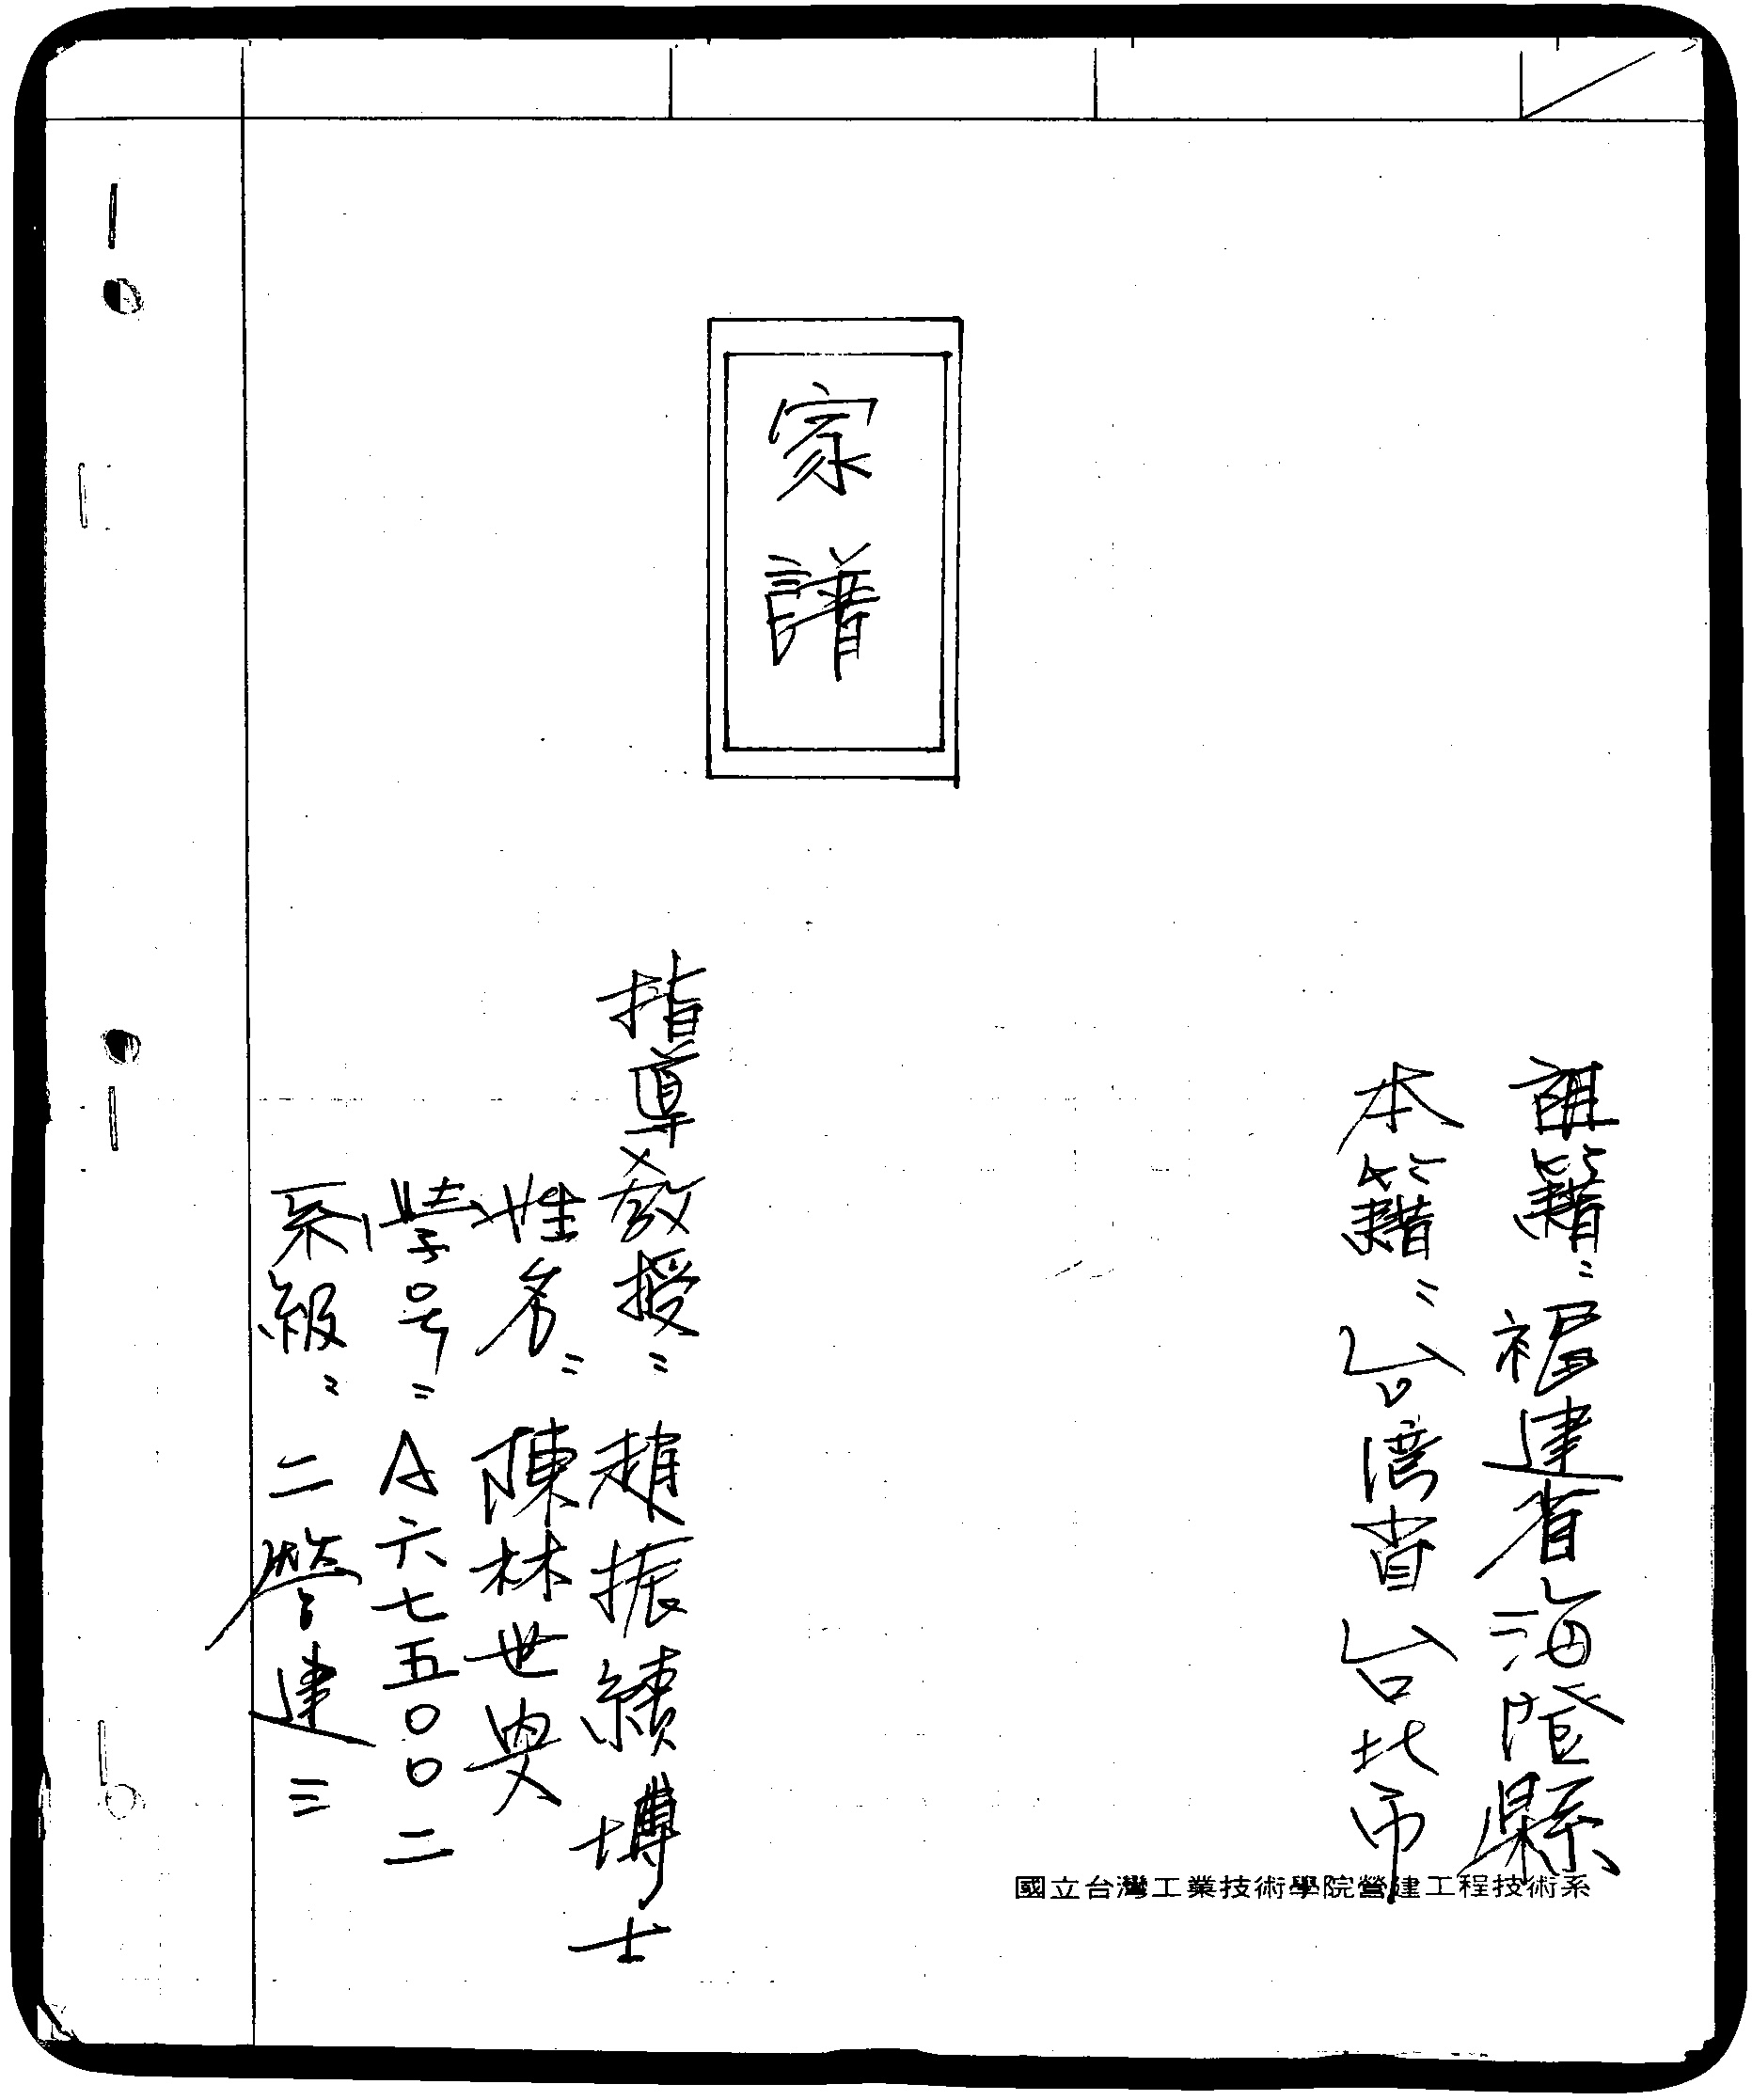 祖籍：福建省海澄縣
本籍：台湾省台北市
家譜
指導教授：趙振績博士
姓名：陳林世
学号：A六七五〇〇二
系級：二營建三
國立台灣工業技術學院營建工程技術系